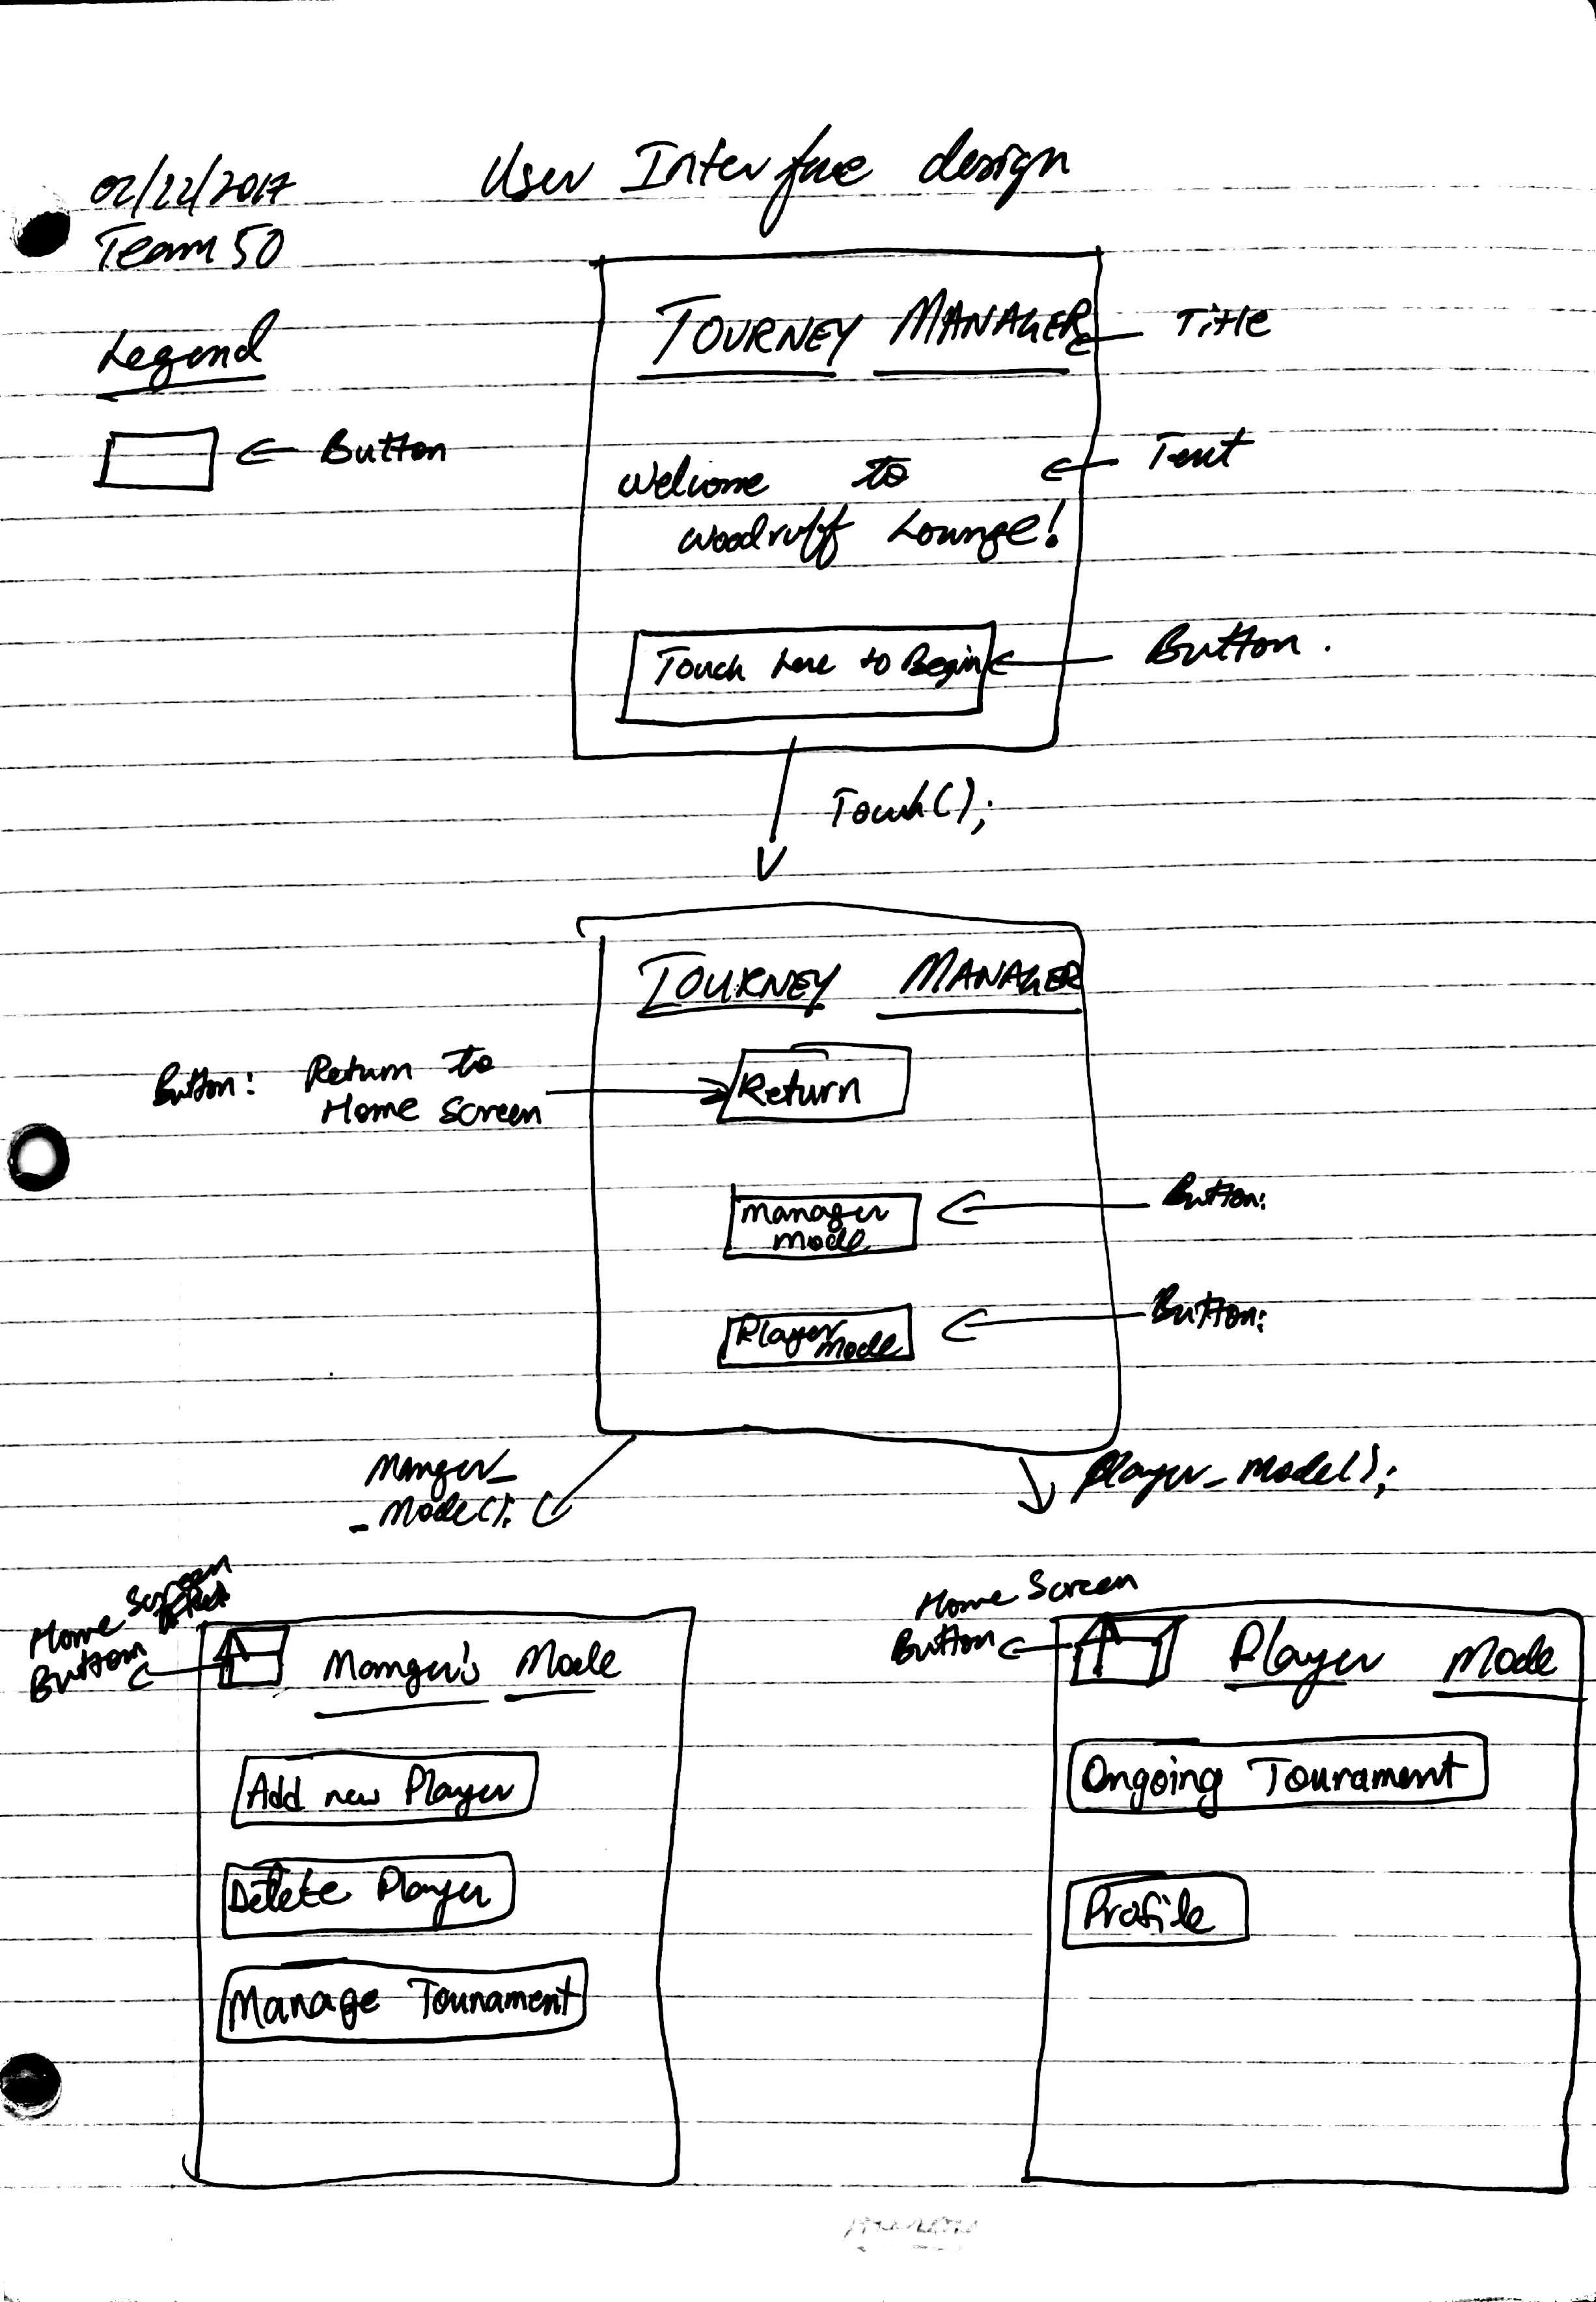 User Interface design
02/22/2017
Team 50
Legend
Button
TOURNEY MANAGER
Title
Welcome to
Woodruff Lounge!
Text
Touch here to Begin
Button.
Touch();
TOURNEY MANAGER
Button: Return to
Home Screen
Return
Manager
Mode
Button:
Player
Mode
Button:
Manger_
_Mode();
player_Mode();
Home Screen
Button
Manger's Mode
Add new Player
Delete Player
Manage Tounament
Home Screen
Button
Player Mode
Ongoing Tourament
Profile